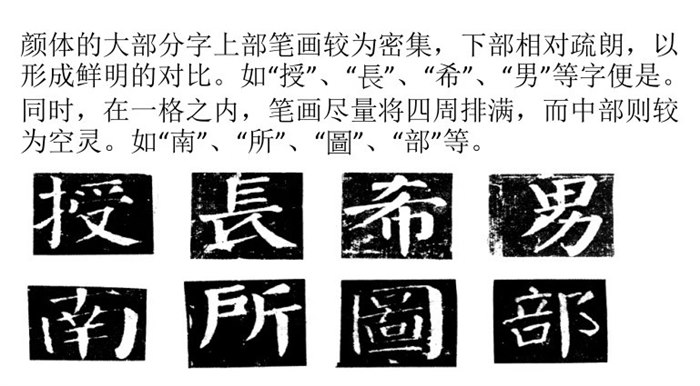 颜体的大部分字上部笔画较为密集，下部相对疏朗，以
形成鲜明的对比。如“授”、“長”、“希”、“男”等字便是。
同时，在一格之内，笔画尽量将四周排满，而中部则较
为空灵。如“南”、“所”、“圖”、“部”等。
授 長 希 男
南 所 圖 部